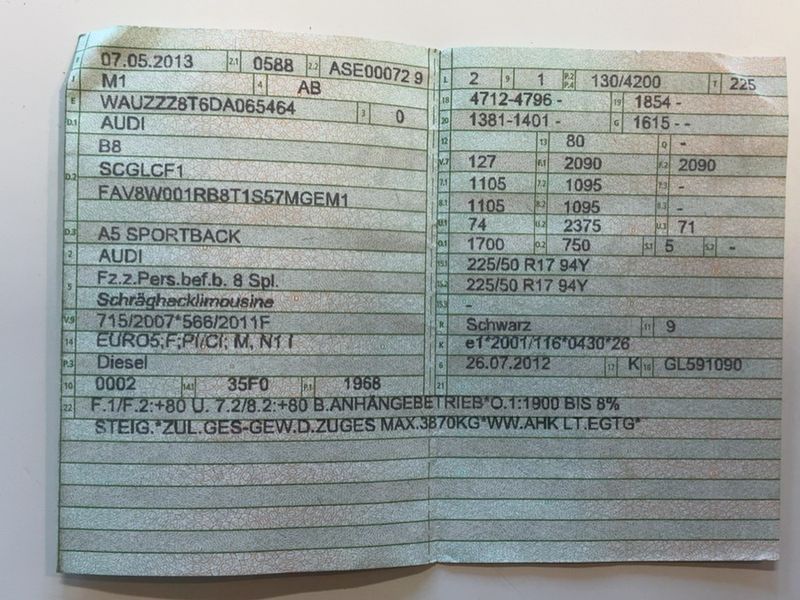 B 07.05.2013 2.1 0588 2.2 ASE00072 9
J M1 4 AB
E WAUZZZ8T6DA065464 3 0
D.1 AUDI
B8
D.2 SCGLCF1
FAV8W001RB8T1S57MGEM1
D.3 A5 SPORTBACK
2 AUDI
5 Fz.z.Pers.bef.b. 8 Spl.
Schräghecklimousine
V.9 715/2007*566/2011F
14 EURO5;F;PI/CI; M, N1 I
P.3 Diesel
10 0002 14.1 35F0 P.1 1968
L 2 9 1 P.2 P.4 130/4200 T 225
18 4712-4796 - 19 1854 -
20 1381-1401 - G 1615 - -
12 13 80 Q -
V.7 127 F.1 2090 F.2 2090
7.1 1105 7.2 1095 7.3 -
8.1 1105 8.2 1095 8.3 -
U.1 74 U.2 2375 U.3 71
O.1 1700 O.2 750 S.1 5 S.2 -
15.1 225/50 R17 94Y
15.2 225/50 R17 94Y
15.3 -
R Schwarz 11 9
K e1*2001/116*0430*26
6 26.07.2012 17 K 16 GL591090
21
22 F.1/F.2:+80 U. 7.2/8.2:+80 B.ANHÄNGEBETRIEB*O.1:1900 BIS 8%
STEIG.*ZUL.GES-GEW.D.ZUGES MAX.3870KG*WW.AHK LT.EGTG*